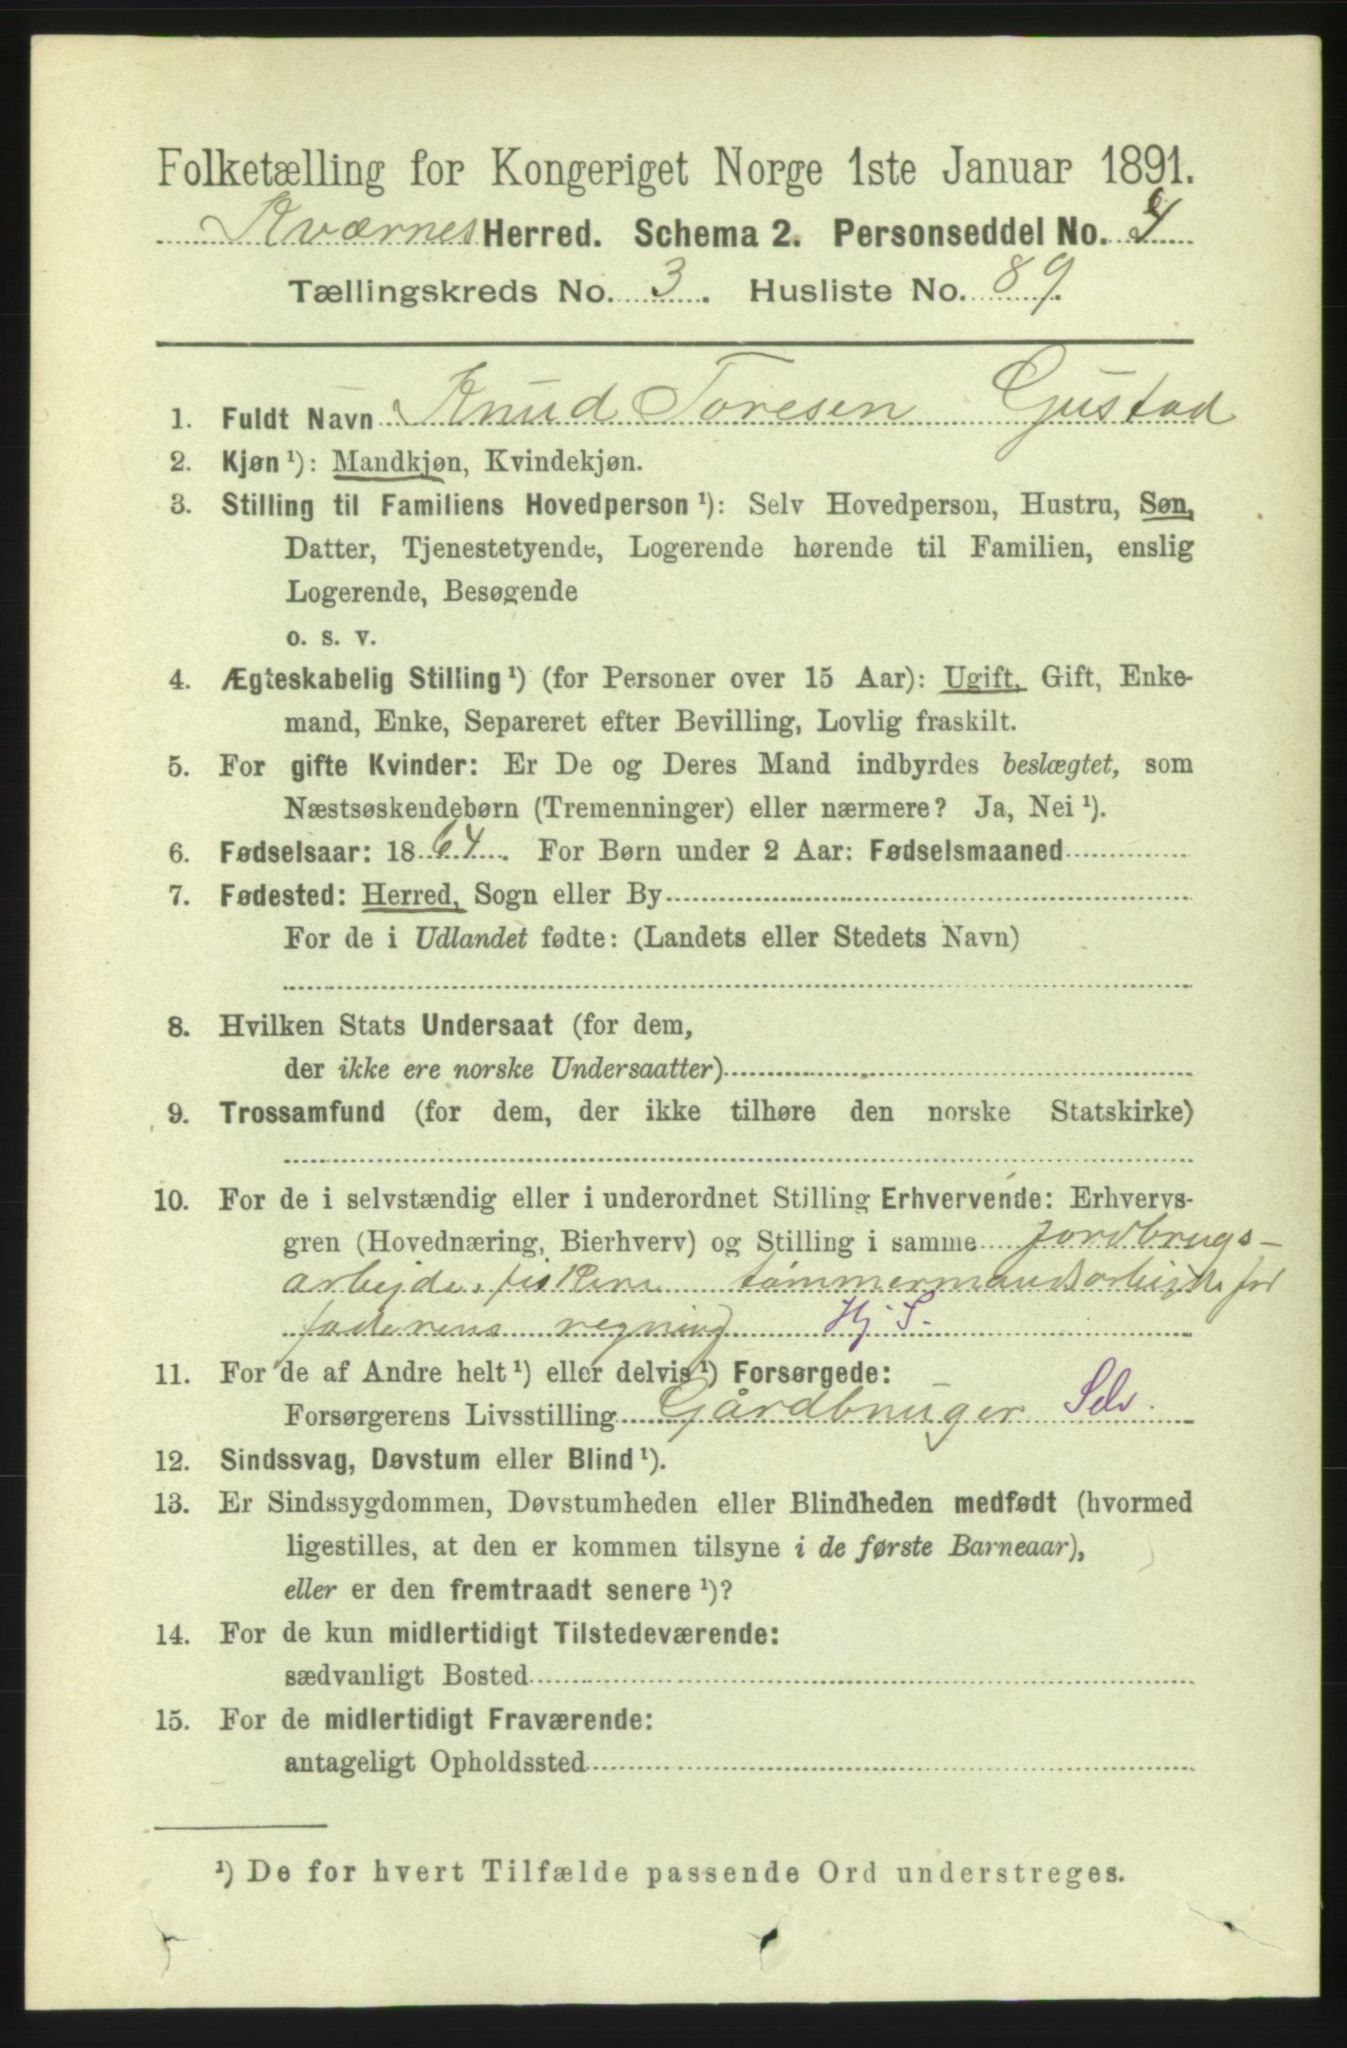 Folketælling for Kongeriget Norge 1ste Januar 1891.
Kværnes Herred. Schema 2. Personseddel No. 4
Tællingskreds No. 3. Husliste No. 89.
1. Fuldt Navn Knud Toresen Gustad
2. Kjøn ¹): Mandkjøn, Kvindekjøn.
3. Stilling til Familiens Hovedperson ¹): Selv Hovedperson, Hustru, Søn,
Datter, Tjenestetyende, Logerende hørende til Familien, enslig
Logerende, Besøgende
o. s. v.
4. Ægteskabelig Stilling ¹) (for Personer over 15 Aar): Ugift, Gift, Enke-
mand, Enke, Separeret efter Bevilling, Lovlig fraskilt.
5. For gifte Kvinder: Er De og Deres Mand indbyrdes beslægtet, som
Næstsøskendebørn (Tremenninger) eller nærmere? Ja, Nei ¹).
6. Fødselsaar: 1864. For Børn under 2 Aar: Fødselsmaaned
7. Fødested: Herred, Sogn eller By
For de i Udlandet fødte: (Landets eller Stedets Navn)
8. Hvilken Stats Undersaat (for dem,
der ikke ere norske Undersaatter)
9. Trossamfund (for dem, der ikke tilhøre den norske Statskirke)
10. For de i selvstændig eller i underordnet Stilling Erhvervende: Erhvervs-
gren (Hovednæring, Bierhverv) og Stilling i samme jordbrugs-
arbejde, fiskeri tømmermandsarbejde for
faderens regning Hj S.
11. For de af Andre helt ¹) eller delvis ¹) Forsørgede:
Forsørgerens Livsstilling Gårdbruger Selv.
12. Sindssvag, Døvstum eller Blind ¹).
13. Er Sindssygdommen, Døvstumheden eller Blindheden medfødt (hvormed
ligestilles, at den er kommen tilsyne i de første Barneaar),
eller er den fremtraadt senere ¹)?
14. For de kun midlertidigt Tilstedeværende:
sædvanligt Bosted
15. For de midlertidigt Fraværende:
antageligt Opholdssted
¹) De for hvert Tilfælde passende Ord understreges.